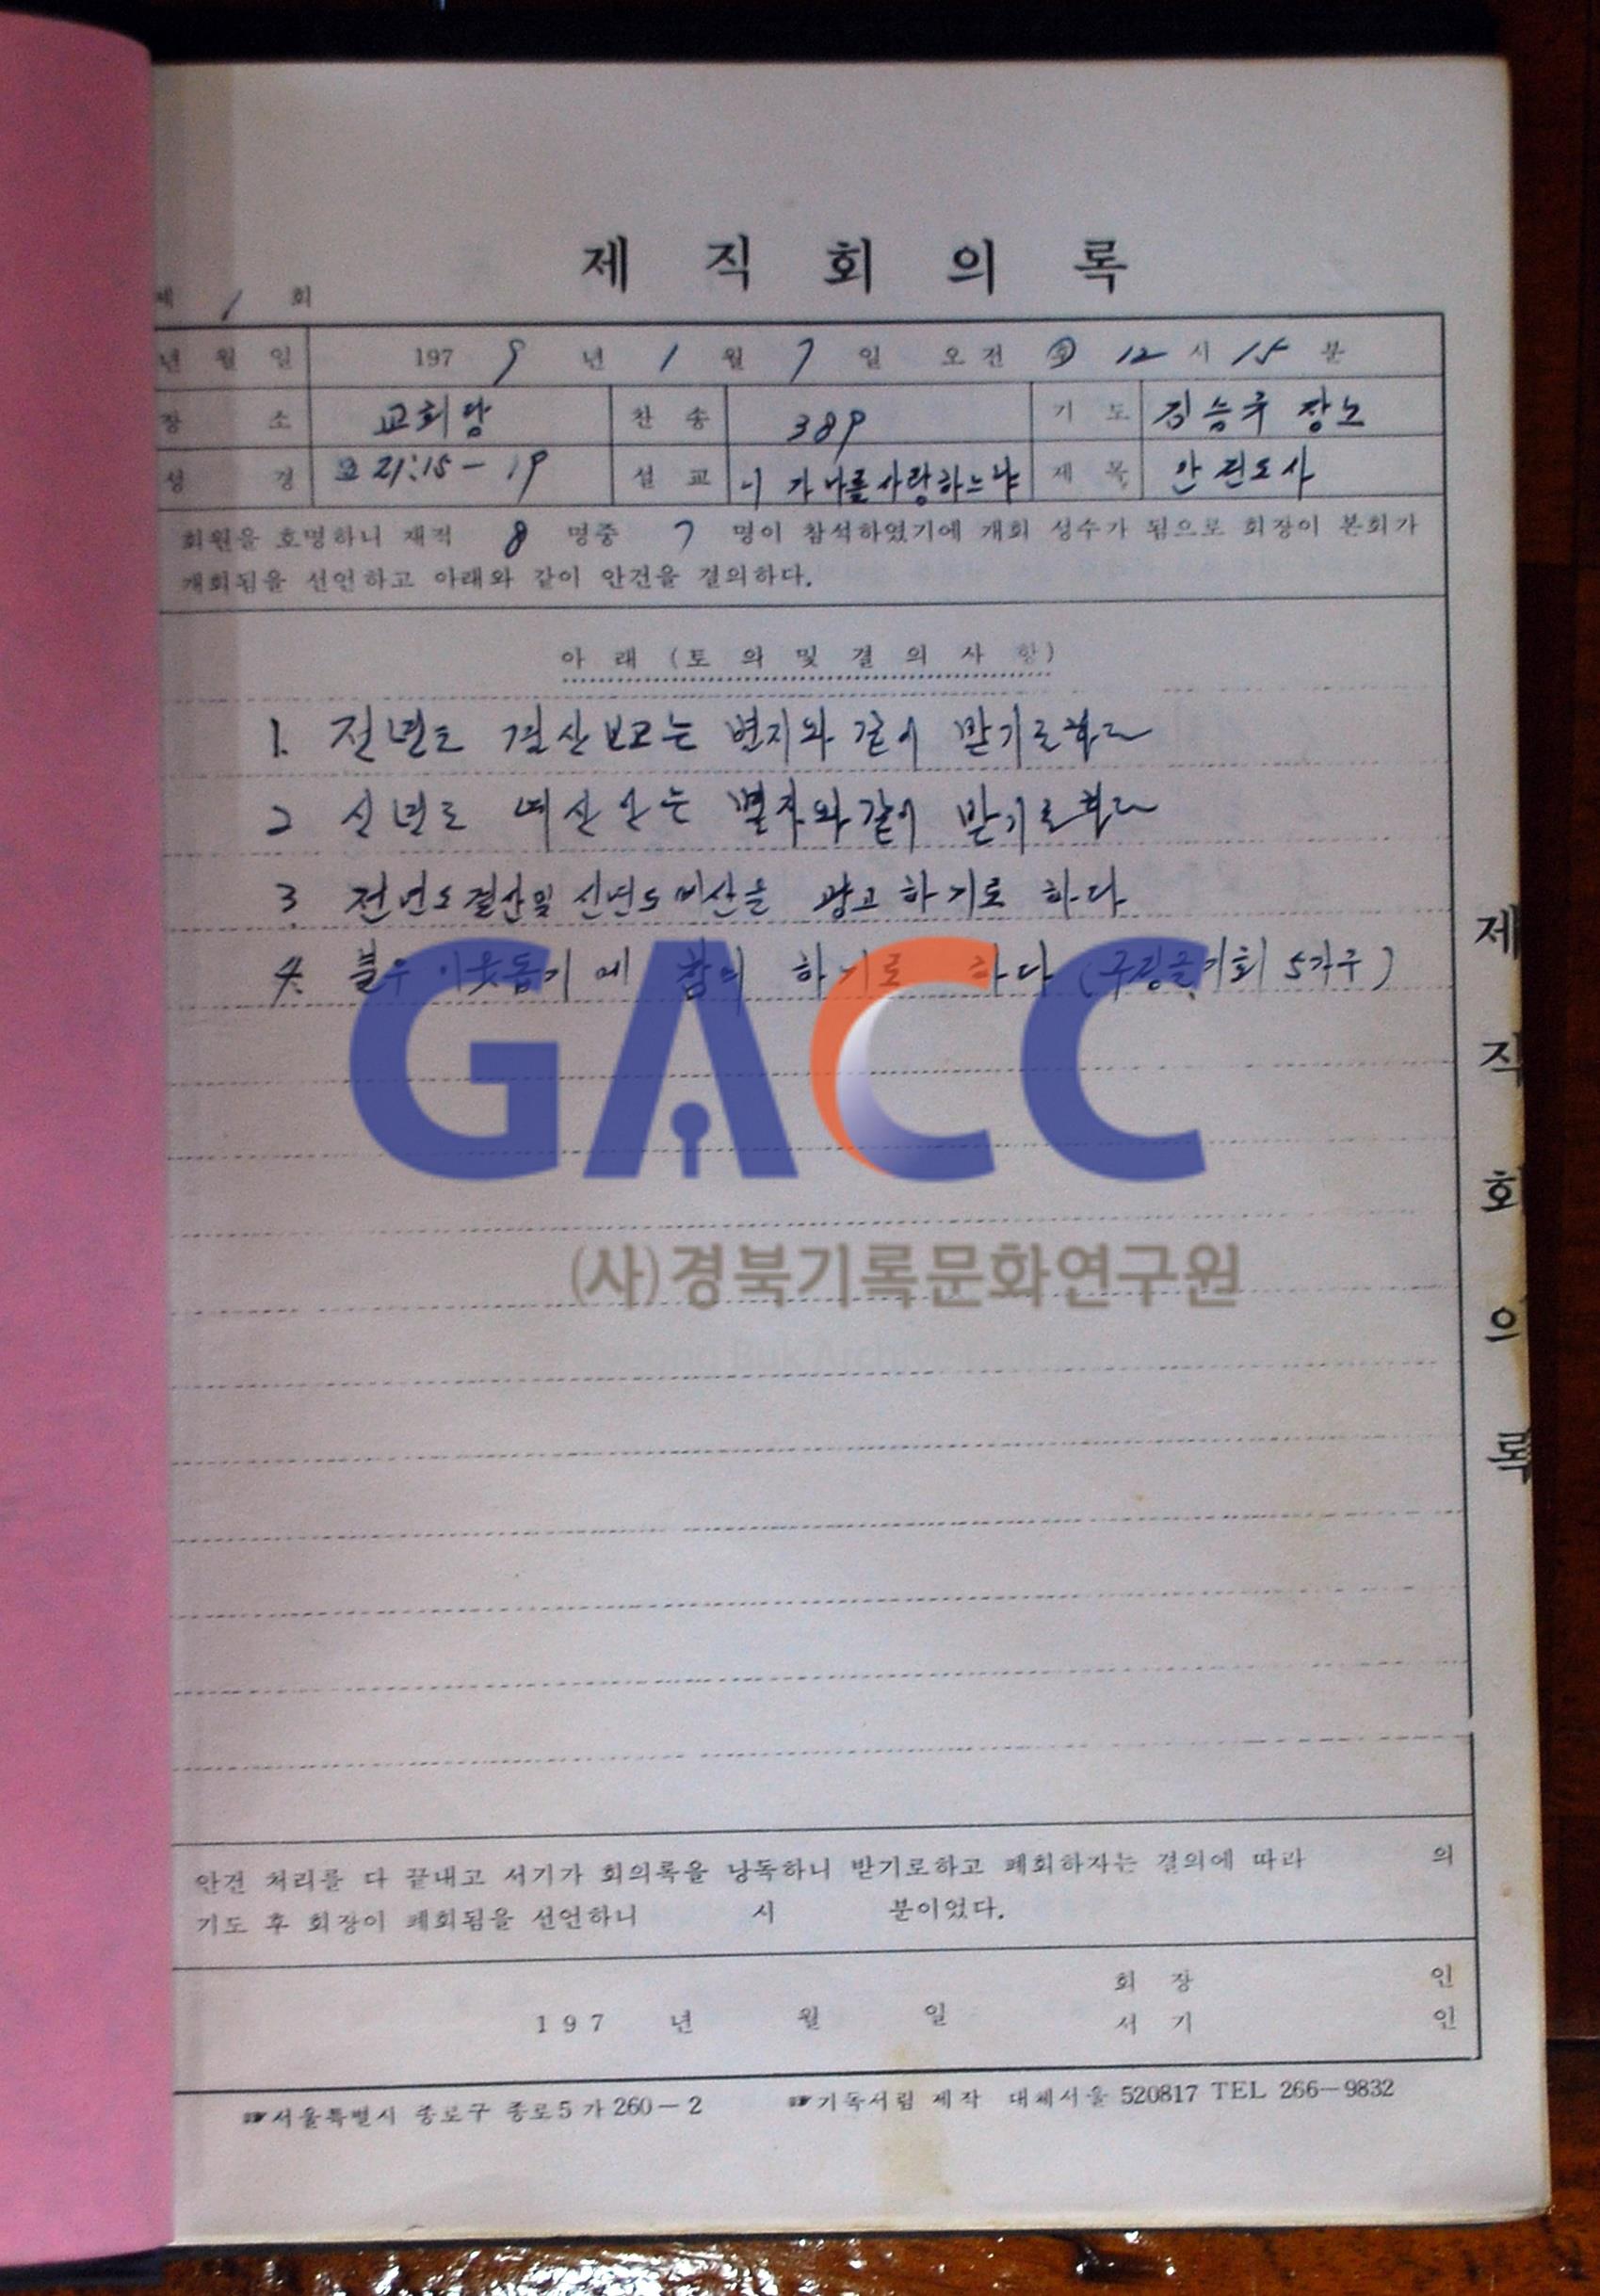 제 직 회 의 록
제 1 회
년 월 일 197 9 년 1 월 7 일 오전 후 12 시 15 분
장 소 교회당 찬 송 389 기 도 김승구 장노
성 경 요 21:15-19 설 교 니가 나를 사랑하느냐 제 목 안전도사
회원을 호명하니 재적 8 명중 7 명이 참석하였기에 개회 성수가 됨으로 회장이 본회가
개회됨을 선언하고 아래와 같이 안건을 결의하다.
아 래 (토 의 및 결 의 사 항)
1. 전년도 결산보고는 별지와 같이 받기로하다
2 신년도 예산안은 별지와같이 받기로하다
3. 전년도결산및 신년도예산을 광고하기로 하다
4. 불우이웃돕기에 하기로 하다 ( 5가구)
GACC
(사)경북기록문화연구원
안건 처리를 다 끝내고 서기가 회의록을 낭독하니 받기로하고 폐회하자는 결의에 따라 의
기도 후 회장이 폐회됨을 선언하니 시 분이었다.
회 장 인
197 년 월 일
서 기 인
☞서울특별시 종로구 종로5가260-2 ☞기독서림 제작 대체서울 520817 TEL 266-9832
제 직 회 의 록